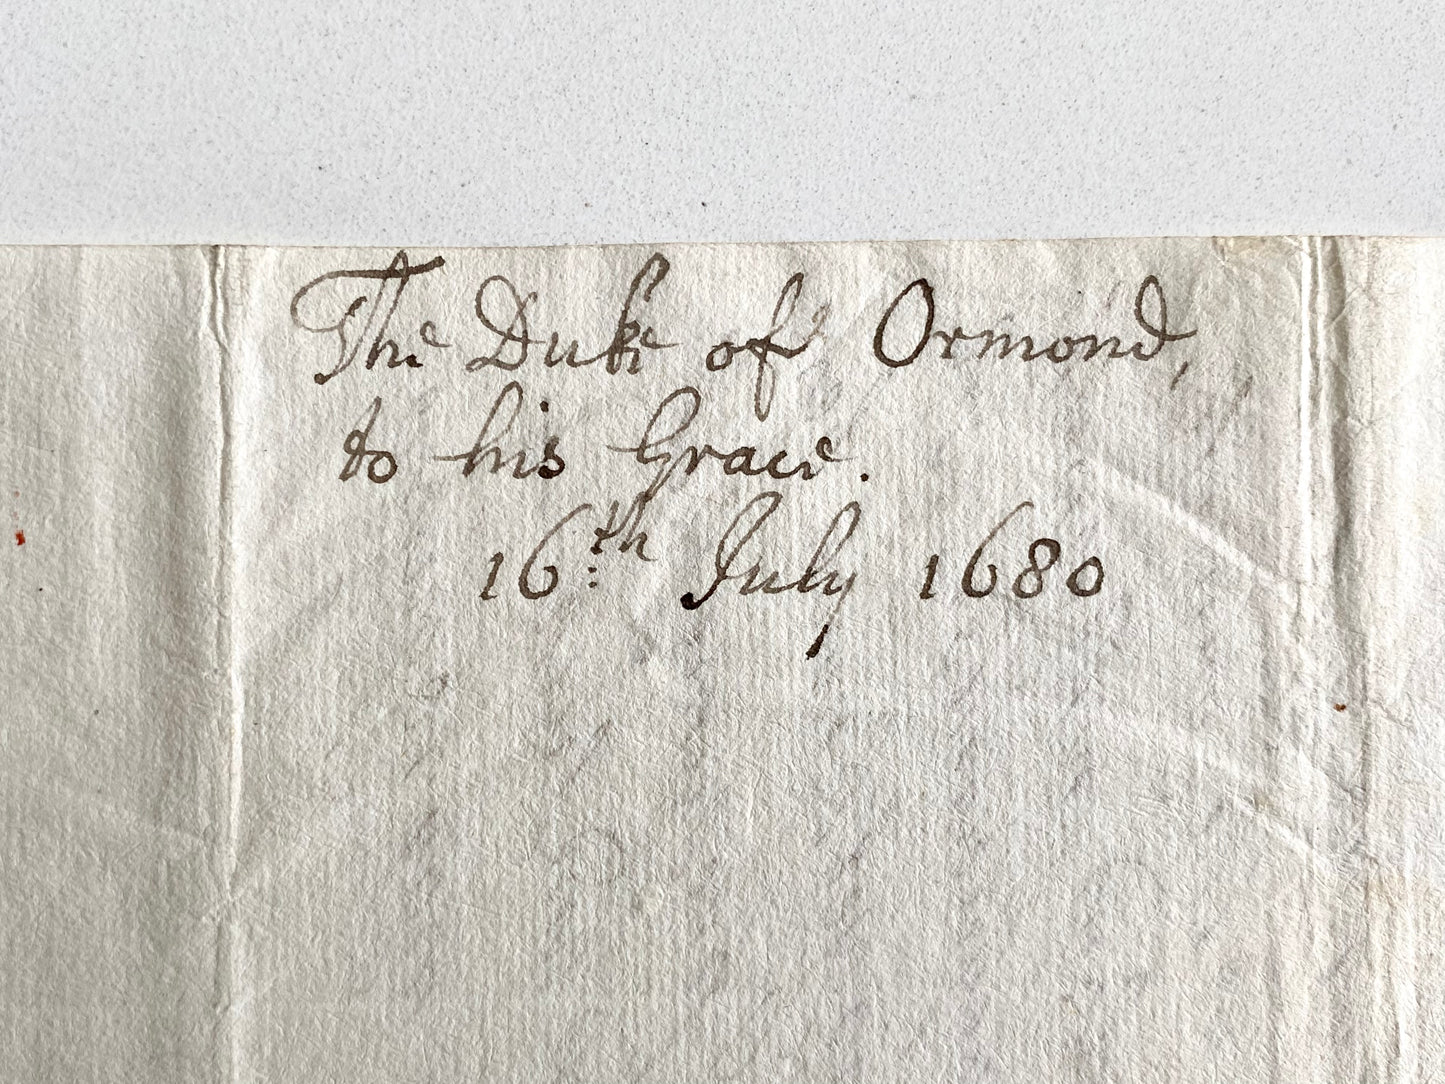 The Duke of Ormond,
to his Grace.
16:th July 1680